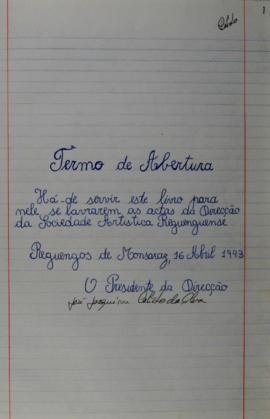 1
Termo de Abertura
Há-de servir este livro para
nele se lavrarem as actas da Direcção
da Sociedade Artística Reguenguense.
Reguengos de Monsaraz, 16 Abril 1993
O Presidente da Direcção
José Joaquim